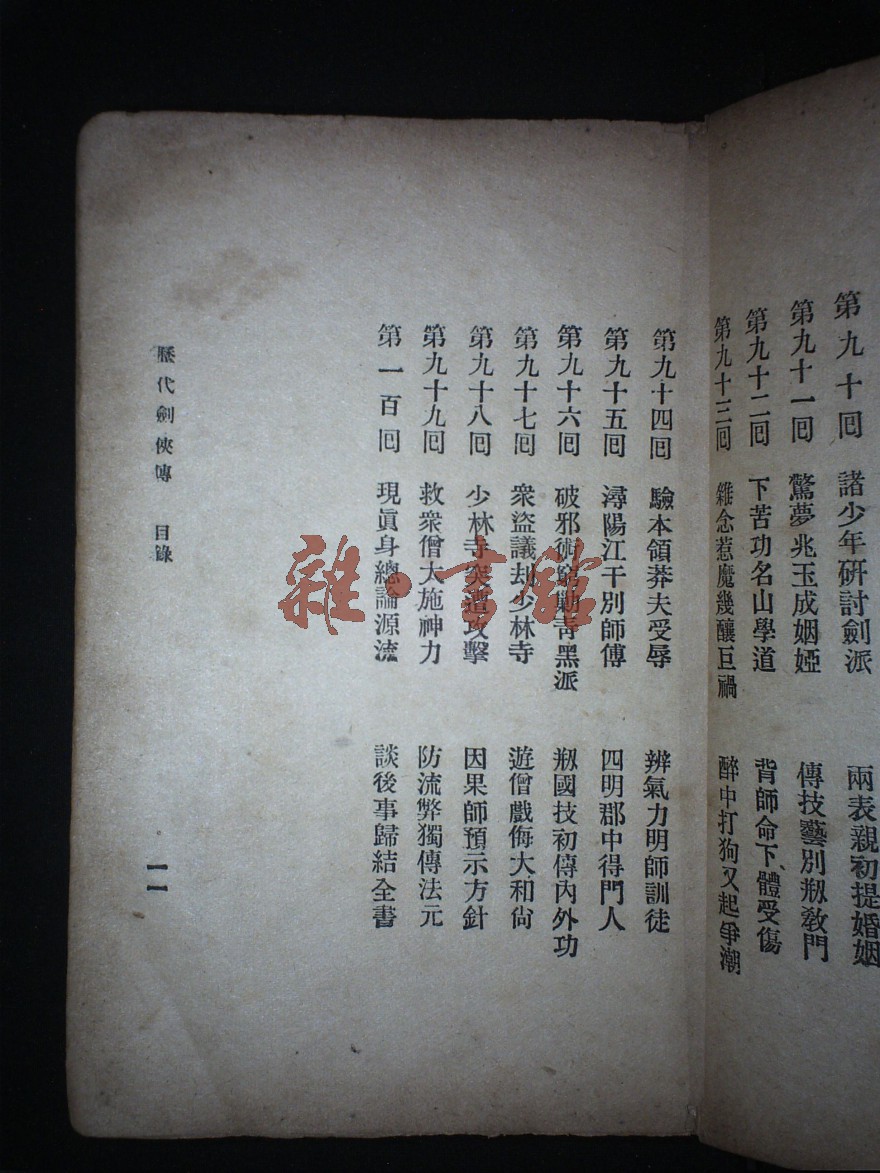 第九十回 諸少年研討劍派 兩表親初提婚姻
第九十一回 驚夢兆玉成姻婭 傳技藝別剏教門
第九十二回 下苦功名山學道 背師命下體受傷
第九十三回 雜念惹魔幾釀巨禍 醉中打狗又起爭潮
第九十四回 驗本領莽夫受辱 辨氣力明師訓徒
第九十五回 潯陽江干別師傅 四明郡中得門人
第九十六回 破邪術窮勦靑黑派 剏國技初傳內外功
第九十七回 衆盜議刦少林寺 遊僧戲侮大和尙
第九十八回 少林寺突遭攻擊 因果師預示方針
第九十九回 救衆僧大施神力 防流弊獨傳法元
第一百回 現眞身總論源流 談後事歸結全書
歷代劍俠傳 目錄
一一
雜·書館